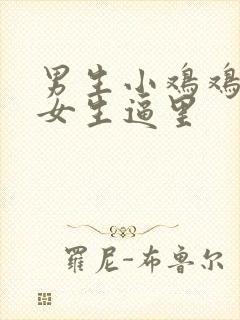 男生小鸡鸡
女生逼里
罗尼-布鲁尔